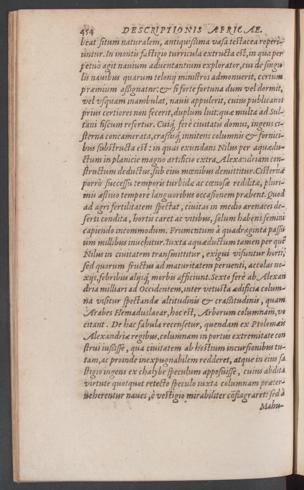 454 DESCRIPTIONIS AFRICAE.
beat situm naturalem, antiquissima vasa testacea reperi-
untur. In montis fastigio turricula extructa est, in qua per
petuò agit nauium aduentantium explorator, cui de singu
lis nauibus quarum telonij ministros admonuerit, certum
præmium assignatur: & si fortè fortuna dum vel dormit,
vel vspiam inambulat, nauis appulerit, cuius publicani
prius certiores non fecerit, duplum luit, quæ multa ad Sul-
tani fiscum refertur. Cuiq; ferè ciuitatis domui, ingens ci-
sterna concamerata, crassisq; innitens columnis & fornici-
bus substructa est: in quas exundans Nilus per aquædu-
ctum in planicie magno artificio extra Alexandriam con-
structum deductus, sub eius mœnibus demittitur. Cisternæ
porrò successu temporis turbidæ ac cœnosæ redditæ, pluri-
mis æstiuo tempore languoribus occasionem præbent. Quod
ad agri fertilitatem spectat, ciuitas in medio arenaceæ de-
serti condita, hortis caret ac vitibus, solum habens semini
capiendo incommodum. Frumentum à quadraginta passu
um millibus inuehitur. Iuxta aquæductum tamen per quē
Nilus in ciuitatem transmittitur, exigui visuntur horti;
sed quorum fructus ad maturitatem peruenti, accolas no-
xijs, febribus alijsq; morbis afficiunt. Sexto ferè ab Alexan
dria milliari ad Occidentem, inter vetusta ædificia colum-
na visitur spectandæ altitudinis & crassitudinis, quam
Arabes Hemadussaoar, hoc est, Arborum columnam, vo
citant. De hac fabula recensetur, quendam ex Ptolomæis
Alexandriæ regibus, columnam in portus extremitate con
strui iussisse, qua ciuitatem ab hostium incursionibus tu-
tam, ac proinde inexpugnabilem redderet, atque in eius fa
stigio ingens ex chalybe speculum apposuisse, cuius abdita
virtute quotquot retecto speculo iuxta columnam præter-
ueherentur naues, è vestigio mirabiliter cōflagrarēt: sed à
Mahu-